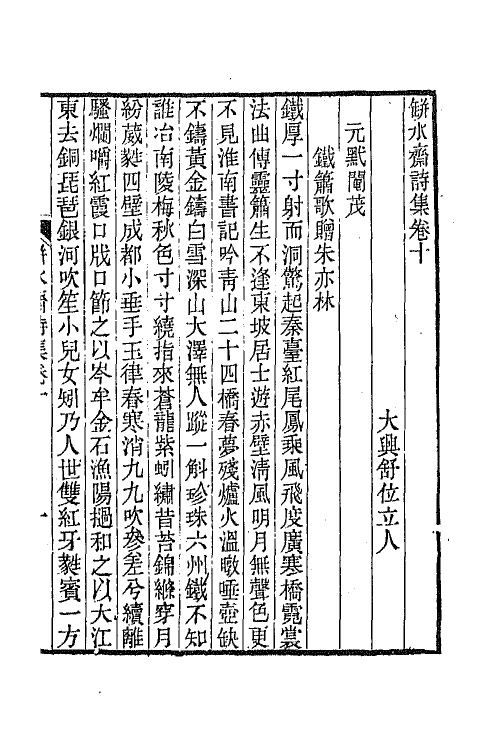 缾水齋詩集卷十
大興舒位立人
元黓閹茂
鐵簫歌贈朱亦林
鐵厚一寸射而洞驚起秦臺紅尾鳳乘風飛度廣寒橋霓裳
法曲傳靈簫生不逢東坡居士遊赤壁淸風明月無聲色更
不見淮南書記吟靑山二十四橋春夢殘爐火溫暾唾壺缺
不鑄黃金鑄白雪深山大澤無人蹤一斛珍珠六州鐵不知
誰冶南陵梅秋色寸寸繞指來蒼龍紫蚓繡昔苔錦縧穿月
紛葳蕤四壁成都小垂手玉律春寒消九九吹參差兮續離
騷爛嚼紅霞口戕口節之以岑牟金石漁陽撾和之以大江
東去銅琵琶銀河吹笙小兒女矧乃人世雙紅牙蕤賓一方
缾水齋詩集卷十
一